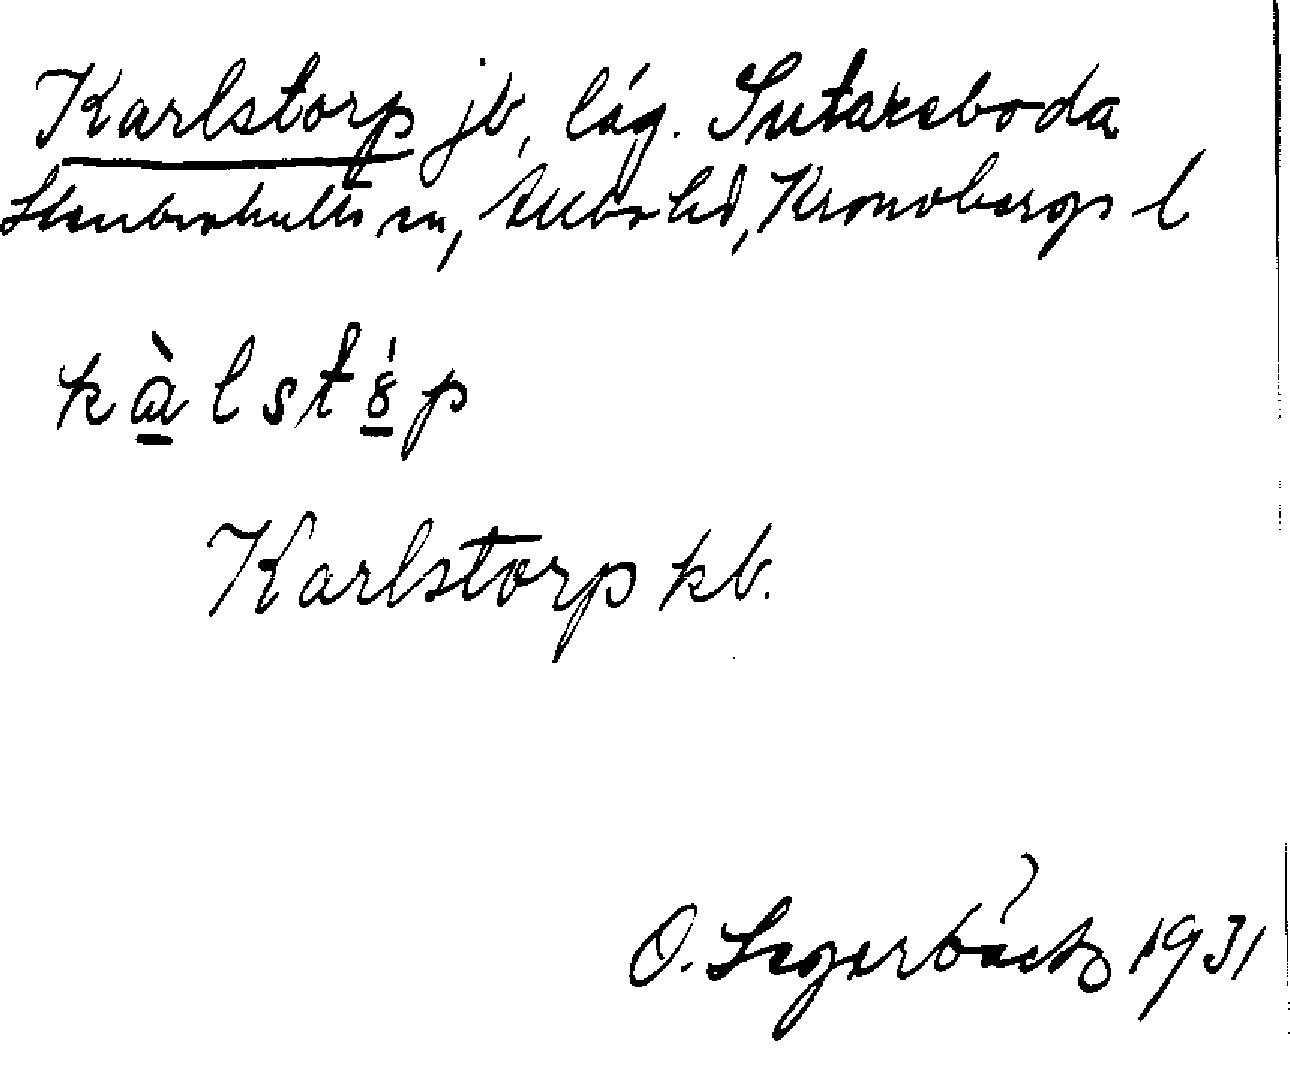 Karlstorp jb, låg. Sutareboda
Stenbrohults sn, Allbo hd, Kronobergs l
kàlstȣ́p
Karlstorp kb.
O. Segerbäck 1931